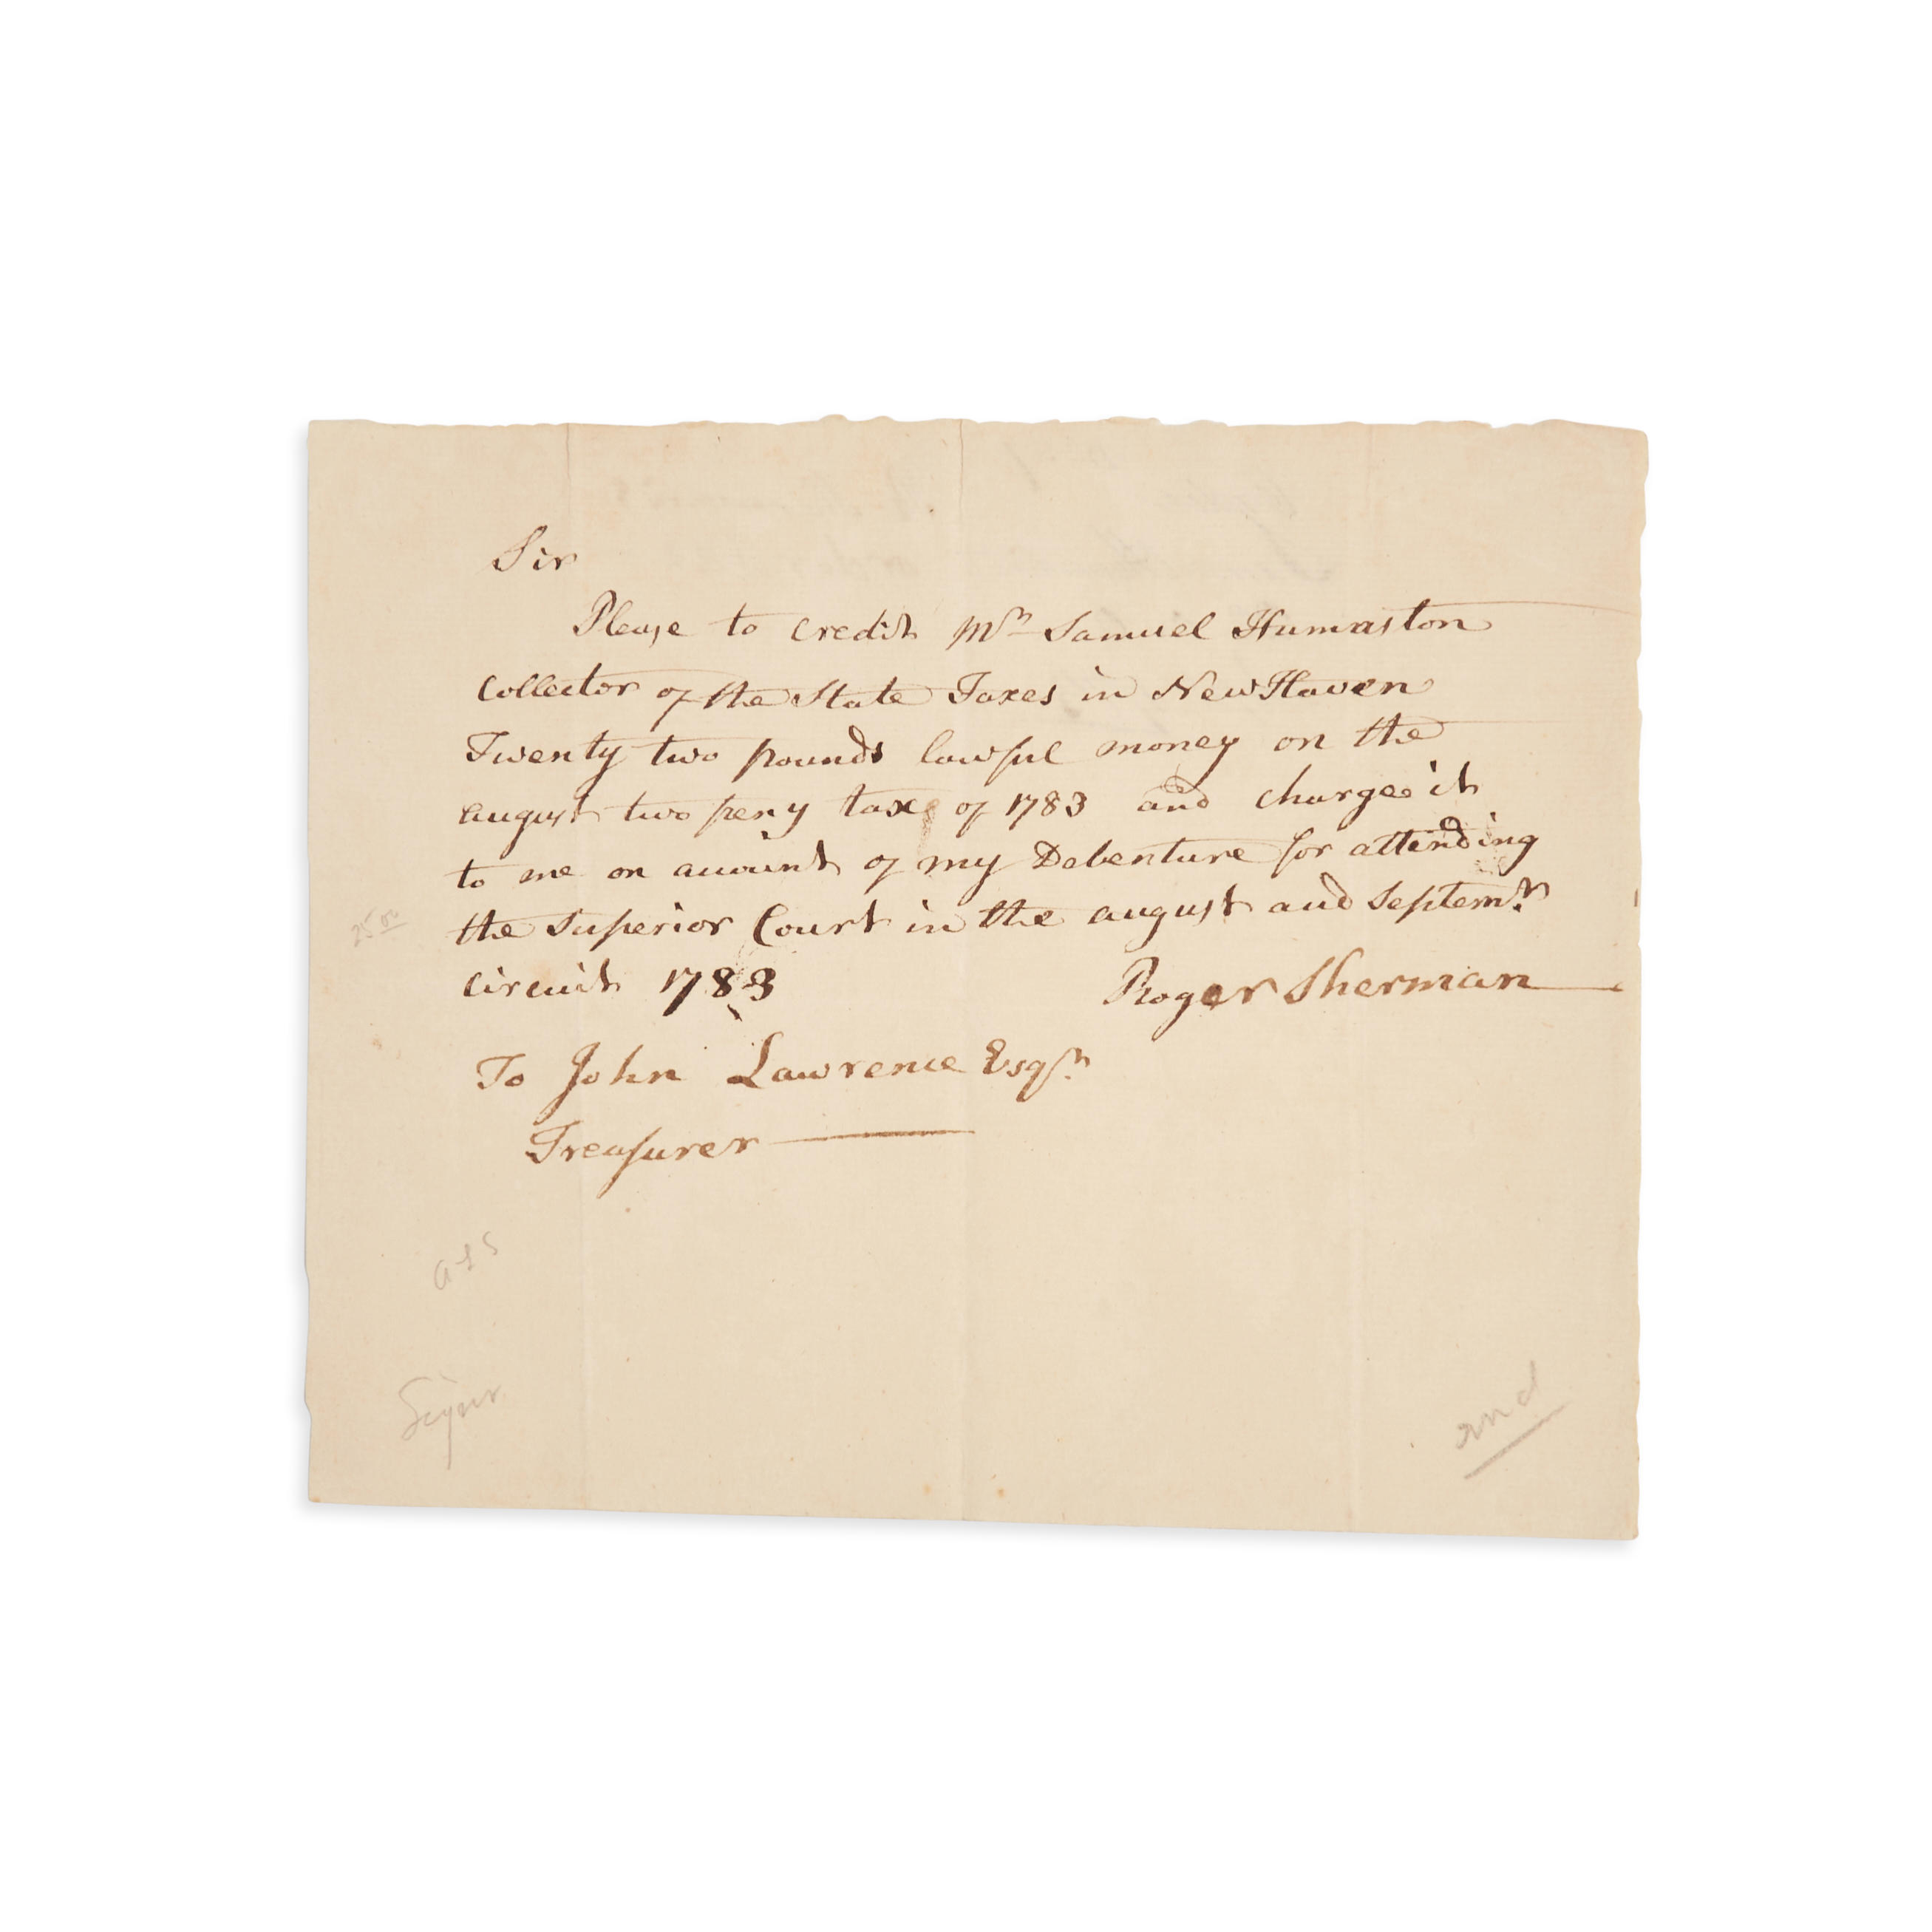 Sir
Please to credit Mr Samuel Humaston
Collector of the State Taxes in New Haven
Twenty two pounds lawful money on the
august two peny tax of 1783 and charge it
to me on account of my Debenture for attending
the Superior Court in the august and Septemr
circuit 1783
Roger Sherman
To John Lawrence Esqr
Treasurer
ALS
Signr
2nd